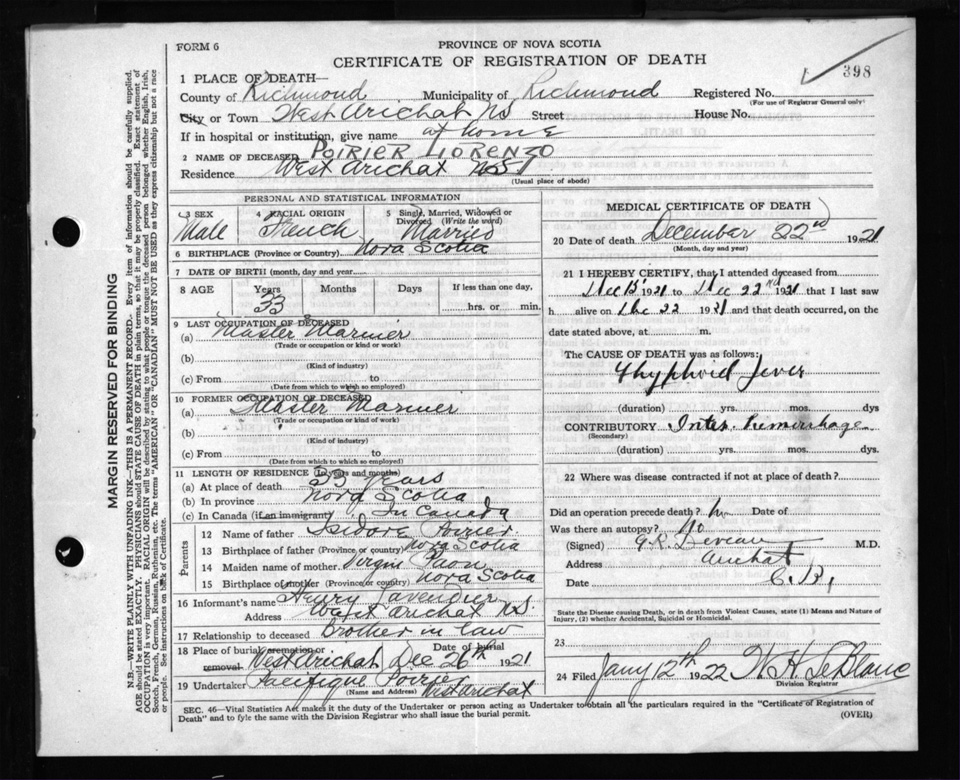 FORM 6
PROVINCE OF NOVA SCOTIA
CERTIFICATE OF REGISTRATION OF DEATH
398
1 PLACE OF DEATH—
County of Richmond Municipality of Richmond Registered No.
(For use of Registrar General only)
City or Town West Arichat NS Street House No.
If in hospital or institution, give name at home
2 NAME OF DECEASED POIRIER LORENZO
Residence West Arichat NS
(Usual place of abode)
PERSONAL AND STATISTICAL INFORMATION
3 SEX 4 RACIAL ORIGIN 5 Single, Married, Widowed or Divorced (Write the word)
Male French Married
6 BIRTHPLACE (Province or Country) Nova Scotia
7 DATE OF BIRTH (month, day and year)
8 AGE Years Months Days If less than one day,
33 hrs. or min.
9 LAST OCCUPATION OF DECEASED
(a) Master Marinier
(Trade or occupation or kind or work)
(b)
(Kind of industry)
(c) From to
(Date from which to which so employed)
10 FORMER OCCUPATION OF DECEASED
(a) Master Marinier
(Trade or occupation or kind of work)
(b)
(Kind of industry)
(c) From to
(Date from which to which so employed)
11 LENGTH OF RESIDENCE (In years and months)
(a) At place of death 33 years
(b) In province Nova Scotia
(c) In Canada (if an immigrant) In Canada
Parents
12 Name of father Isidore Poirier
13 Birthplace of father (Province or country) Nova Scotia
14 Maiden name of mother
15 Birthplace of mother (Province or country) Nova Scotia
16 Informant's name Henry
Address West Arichat N.S.
17 Relationship to deceased brother in law
18 Place of burial cremation or removal Date of burial
West Arichat Dec 26th 1921
19 Undertaker Pacifique
(Name and Address) West Arichat
MEDICAL CERTIFICATE OF DEATH
20 Date of death December 22nd 1921
(Month, day and year)
21 I HEREBY CERTIFY, that I attended deceased from
Dec 13 1921 to Dec 22nd 1921 that I last saw
h alive on Dec 22 1921 and that death occurred, on the
date stated above, at m.
The CAUSE OF DEATH was as follows:
Thyphoid fever
(duration) yrs. mos. dys
CONTRIBUTORY
(Secondary)
(duration) yrs. mos. dys.
22 Where was disease contracted if not at place of death?
Did an operation precede death? No
Was there an autopsy? No
(Signed) M.D.
Address Arichat
Date C.B.
State the Disease causing Death, or in death from Violent Causes, state (1) Means and Nature of Injury, (2) whether Accidental, Suicidal or Homicidal.
23
24 Filed Jany 12th 1922 W H LeBlanc
Division Registrar
SEC. 46—Vital Statistics Act makes it the duty of the Undertaker or person acting as Undertaker to obtain all the particulars required in the "Certificate of Registration of
Death" and to fyle the same with the Division Registrar who shall issue the burial permit.
(OVER)
MARGIN RESERVED FOR BINDING
N.B.—WRITE PLAINLY WITH UNFADING INK—THIS IS A PERMANENT RECORD. Every item of information should be carefully supplied.
AGE should be stated EXACTLY. PHYSICIANS should STATE CAUSE OF DEATH in plain terms, so that it may be properly classified. Exact statement of
OCCUPATION is very important. RACIAL ORIGIN will be described by stating to what people or tongue the deceased person belonged whether English, Irish,
Scotch, French, German, Russian, Ruthenian, etc. The terms "AMERICAN" OR "CANADIAN" MUST NOT BE USED as they express citizenship but not a race
or people. See instructions on back of Certificate.